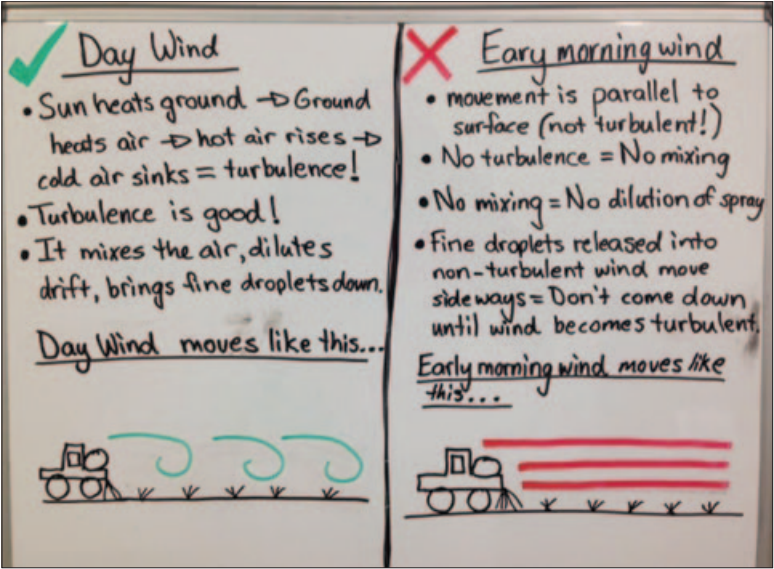 Day Wind
• Sun heats ground → Ground
heats air → hot air rises →
cold air sinks = turbulence!
• Turbulence is good!
• It mixes the air, dilutes
drift, brings fine droplets down.
Day Wind moves like this...
Eary morning wind
• movement is parallel to
surface (not turbulent!)
• No turbulence = No mixing
• No mixing = No dilution of spray
• Fine droplets released into
non-turbulent wind move
sideways = Don't come down
until wind becomes turbulent.
Early morning wind moves like
this...